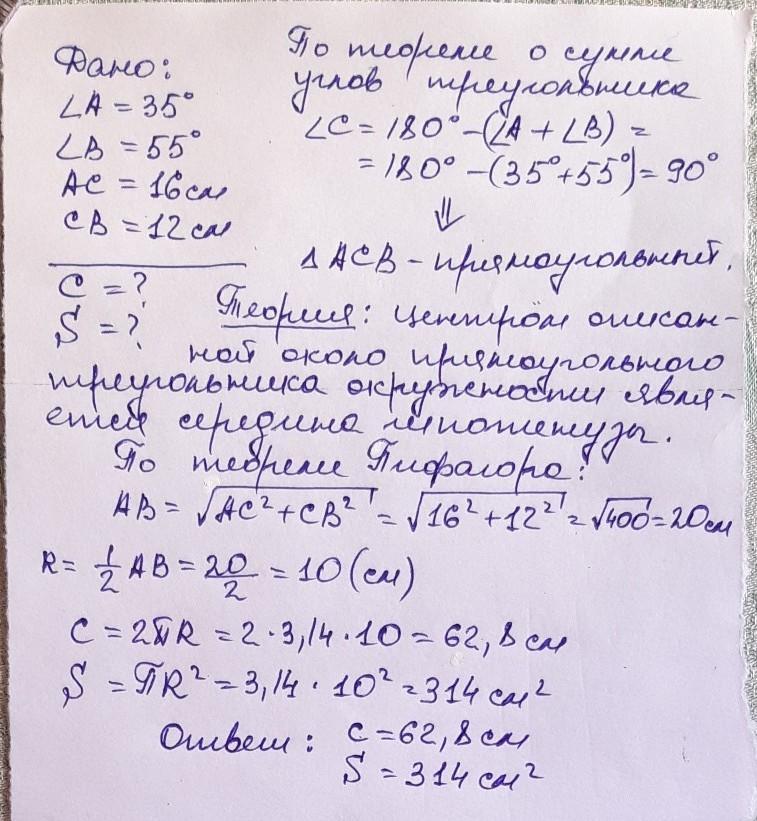 Дано:
∠A = 35°
∠B = 55°
AC = 16 см
CB = 12 см
C = ?
S = ?
По теореме о сумме
углов треугольника
∠C = 180° - (∠A + ∠B) =
= 180° - (35° + 55°) = 90°
⇓
△ ACB - прямоугольный.
Теория: центром описан-
ной около прямоугольного
треугольника окружности явля-
ется середина гипотенузы.
По теореме Пифагора:
AB = √AC² + CB² = √16² + 12² = √400 = 20 см
R = 1/2 AB = 20/2 = 10 (см)
C = 2πR = 2 · 3,14 · 10 = 62,8 см
S = πR² = 3,14 · 10² = 314 см²
Ответ: C = 62,8 см
S = 314 см²